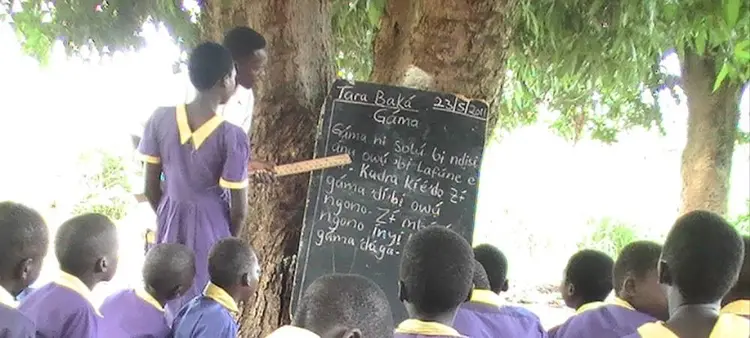 Tara Baká 23/5/2011
Gáma
Gáma ni Solú bị ndịsị
ánụ owụ́ bị Lafúne e
Kadra kí e do Zḟ
gáma dí bị owụ́
ngono. Zḟ
ngono ínyị
gáma dága.